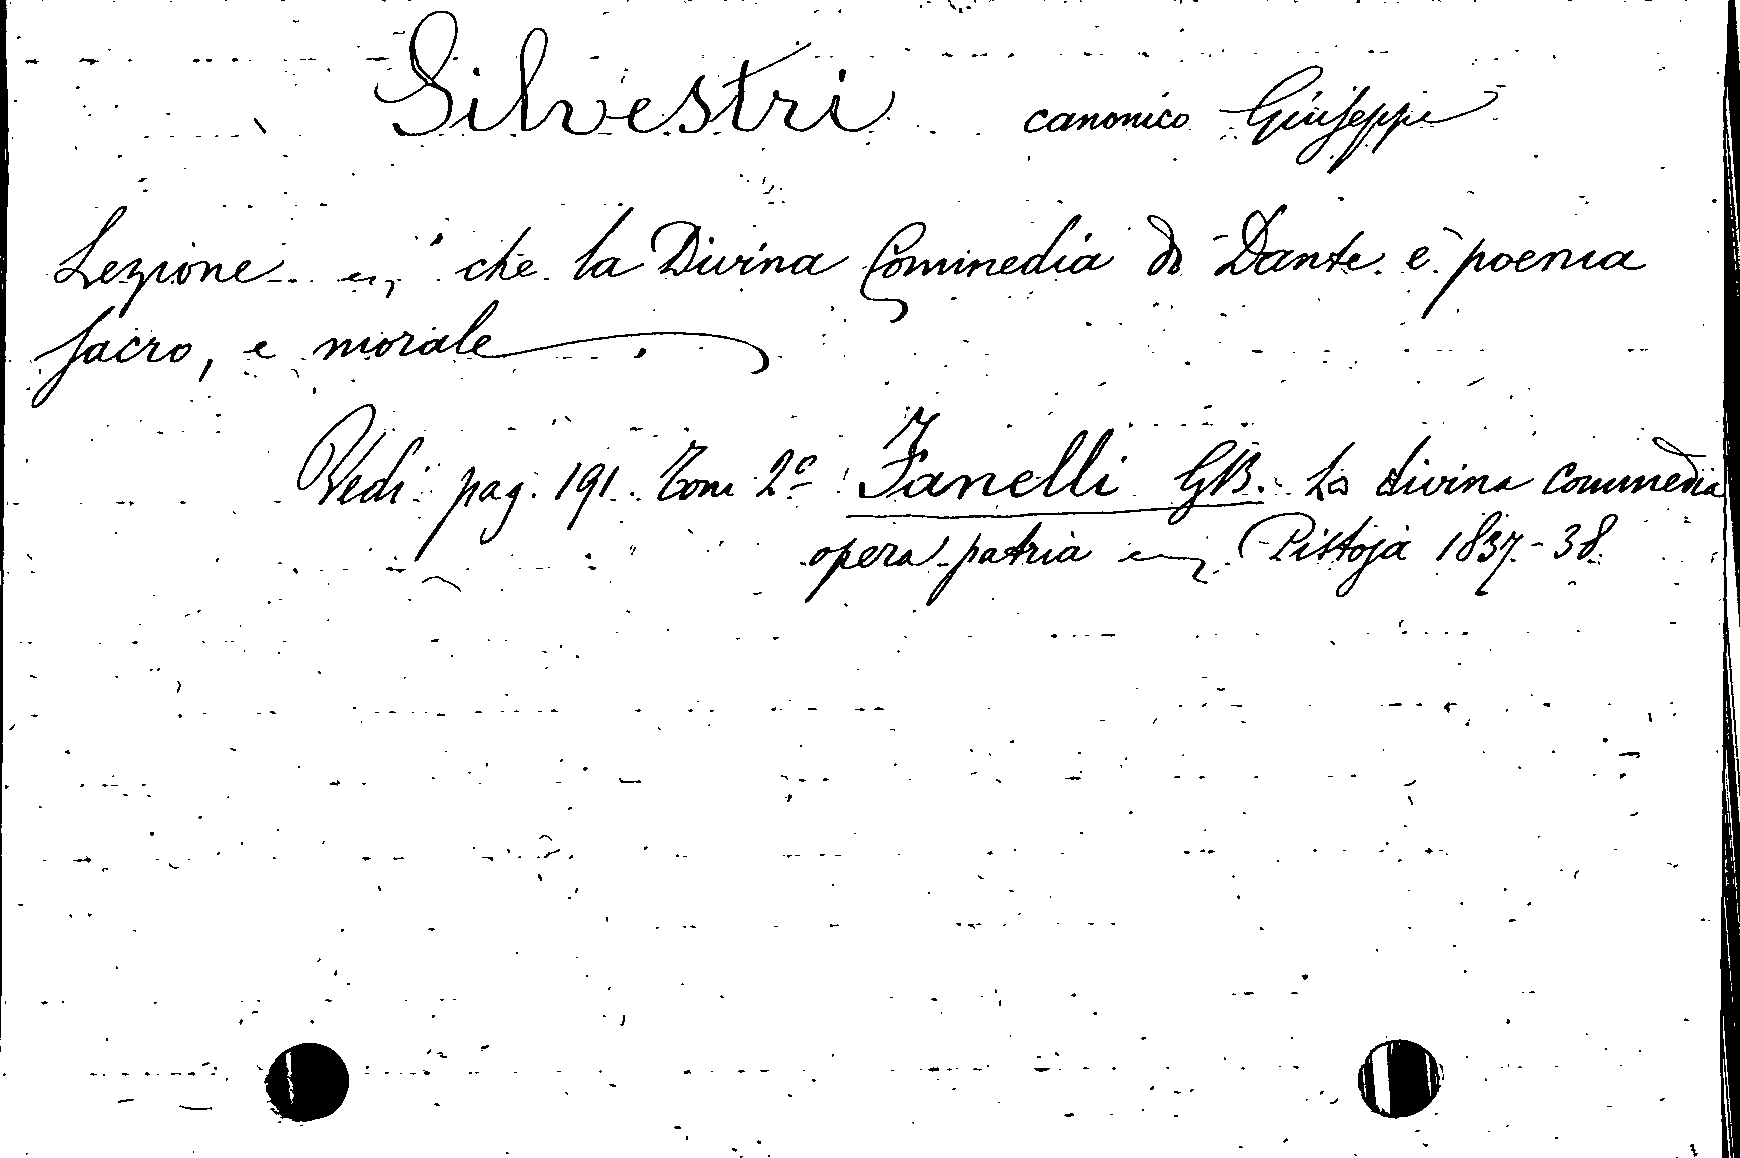 Silvestri canonico Giuseppe
Lezione che la Divina Commedia di Dante è poema
sacro, e morale
Vedi pag. 191. Tom 2º Fanelli GB. La divina commedia
opera patria Pistoja 1837-38.